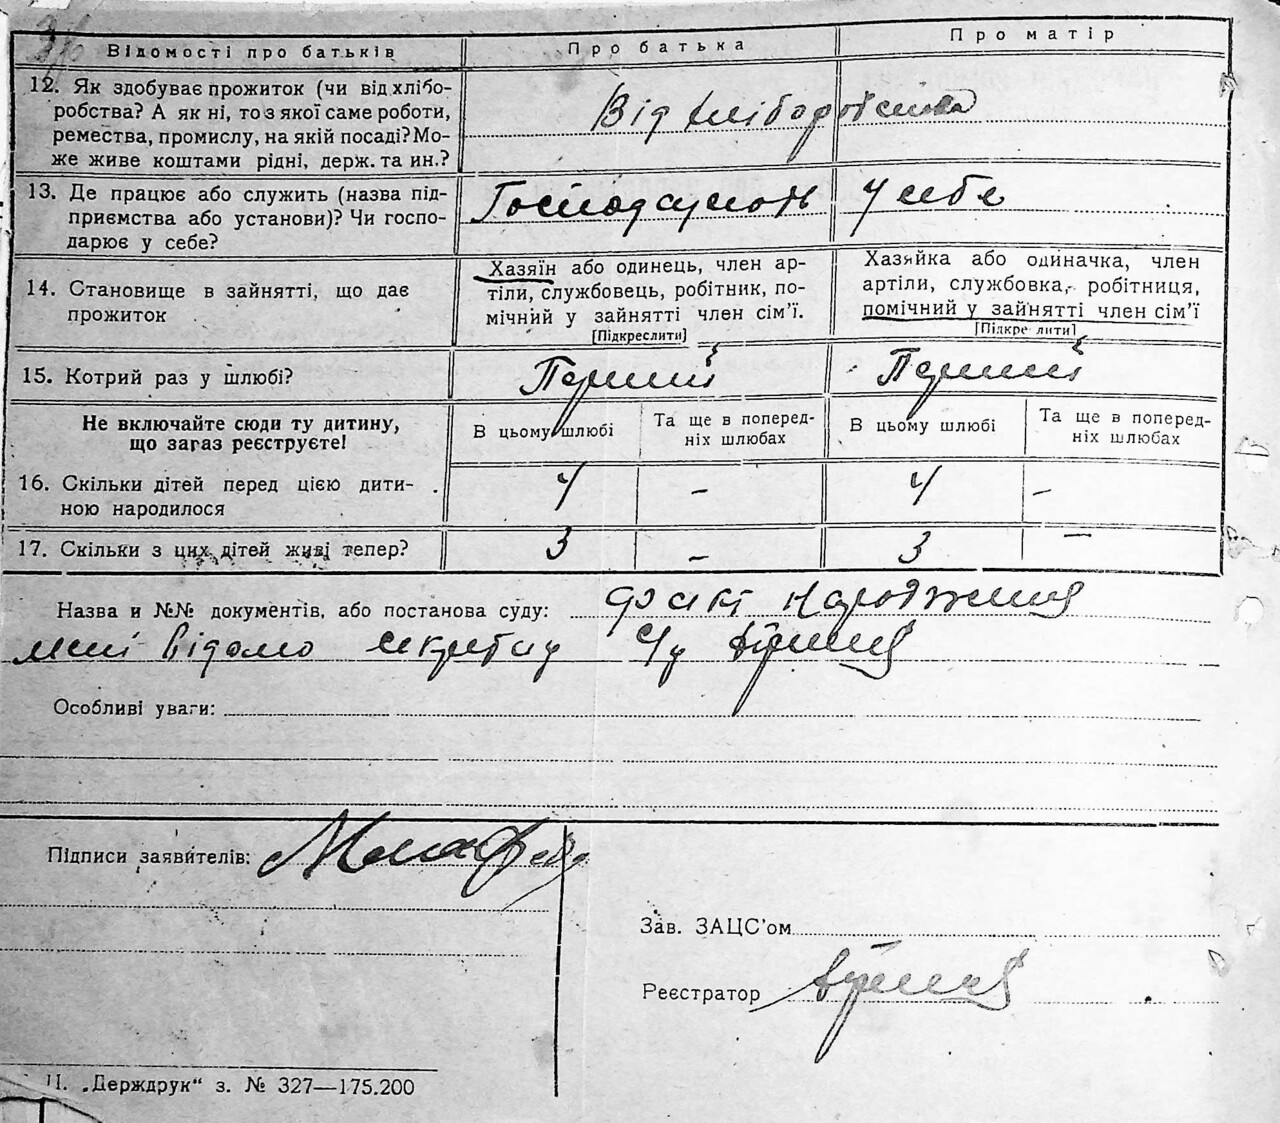 Відомості про батьків
Про батька
Про матір
12. Як здобуває прожиток (чи від хлібо-
робства? А як ні, то з якої саме роботи,
ремества, промислу, на якій посаді? Мо-
же живе коштами рідні, держ. та ин.?
Від хліборобства
13. Де працює або служить (назва під-
приємства або установи)? Чи госпо-
дарює у себе?
у себе
14. Становище в зайнятті, що дає
прожиток
Хазяїн або одинець, член ар-
тіли, службовець, робітник, по-
мічний у зайнятті член сім'ї.
[Підкреслити]
Хазяйка або одиначка, член
артіли, службовка, робітниця,
помічний у зайнятті член сім'ї
[Підкре лити]
15. Котрий раз у шлюбі?
Перший
Перший
Не включайте сюди ту дитину,
що загаз реєструєте!
В цьому шлюбі
Та ще в поперед-
ніх шлюбах
В цьому шлюбі
Та ще в поперед-
ніх шлюбах
16. Скільки дітей перед цією дити-
ною народилося
4
-
4
-
17. Скільки з цих дітей живі тепер?
3
-
3
-
Назва и №№ документів, або постанова суду: факт народження
мені відомо секретар с/р
Особливі уваги:
Підписи заявителів:
Зав. ЗАЦС'ом
Реєстратор
П. „Держдрук“ з. № 327—175.200